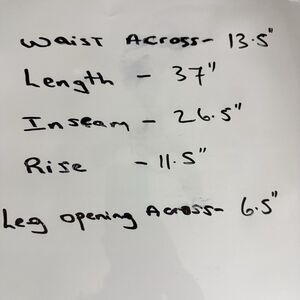 Waist Across- 13.5"
Length - 37"
Inseam - 26.5"
Rise - 11.5"
Leg opening Across- 6.5"